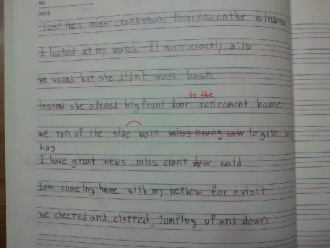 Just then, miss crankshaw knocked on the window
I looked at my watch It was exactly 3:15
we waved but she didn't wave back
Instead she opened big front door retirement home
to the
we ran up the side walk miss hrung saw to give big
hug
I have great news miss crant saw said
Sam comeing home with my nephew for a visit
we cheered and clapped, jumping up and down